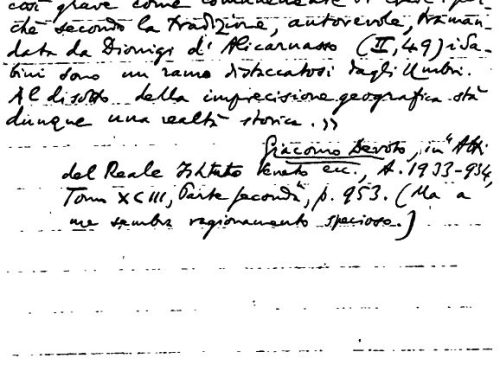 così grave come comunemente si crede, per-
chè secondo la tradizione, autorevole, traman-
data da Dionigi d'Alicarnasso (II, 49) i Sa-
bini sono un ramo distaccatosi dagli Umbri.
Al disotto della imprecisione geografica sta
dunque una realtà storica.»
Giacomo Devoto, in "Atti
del Reale Istituto Veneto ecc., A. 1933-934,
Tom XCIII, Parte seconda", p. 953. (Ma a
me sembra ragionamento specioso.)